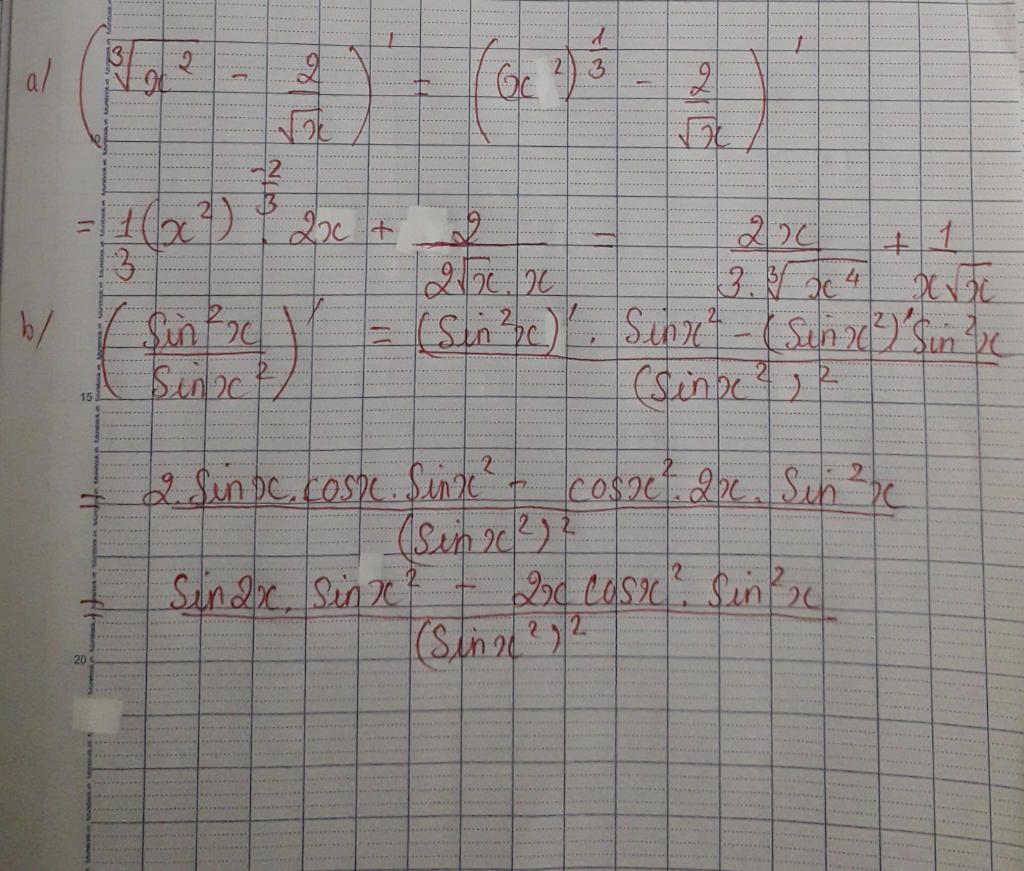 a/ (∛x² - 2/√x)' = ((x²)^(1/3) - 2/√x)'
= 1/3 (x²)^(-2/3) . 2x + 2/(2√x . x) = 2x/(3.∛x⁴) + 1/(x√x)
b/ (Sin²x/Sinx²)' = ((Sin²x)' . Sinx² - (Sinx²)' Sin²x)/(Sinx²)²
15
= (2.Sinx.cosx.Sinx² - cosx².2x.Sin²x)/(Sinx²)²
= (Sin2x. Sinx² - 2x cosx². Sin²x)/(Sinx²)²
20